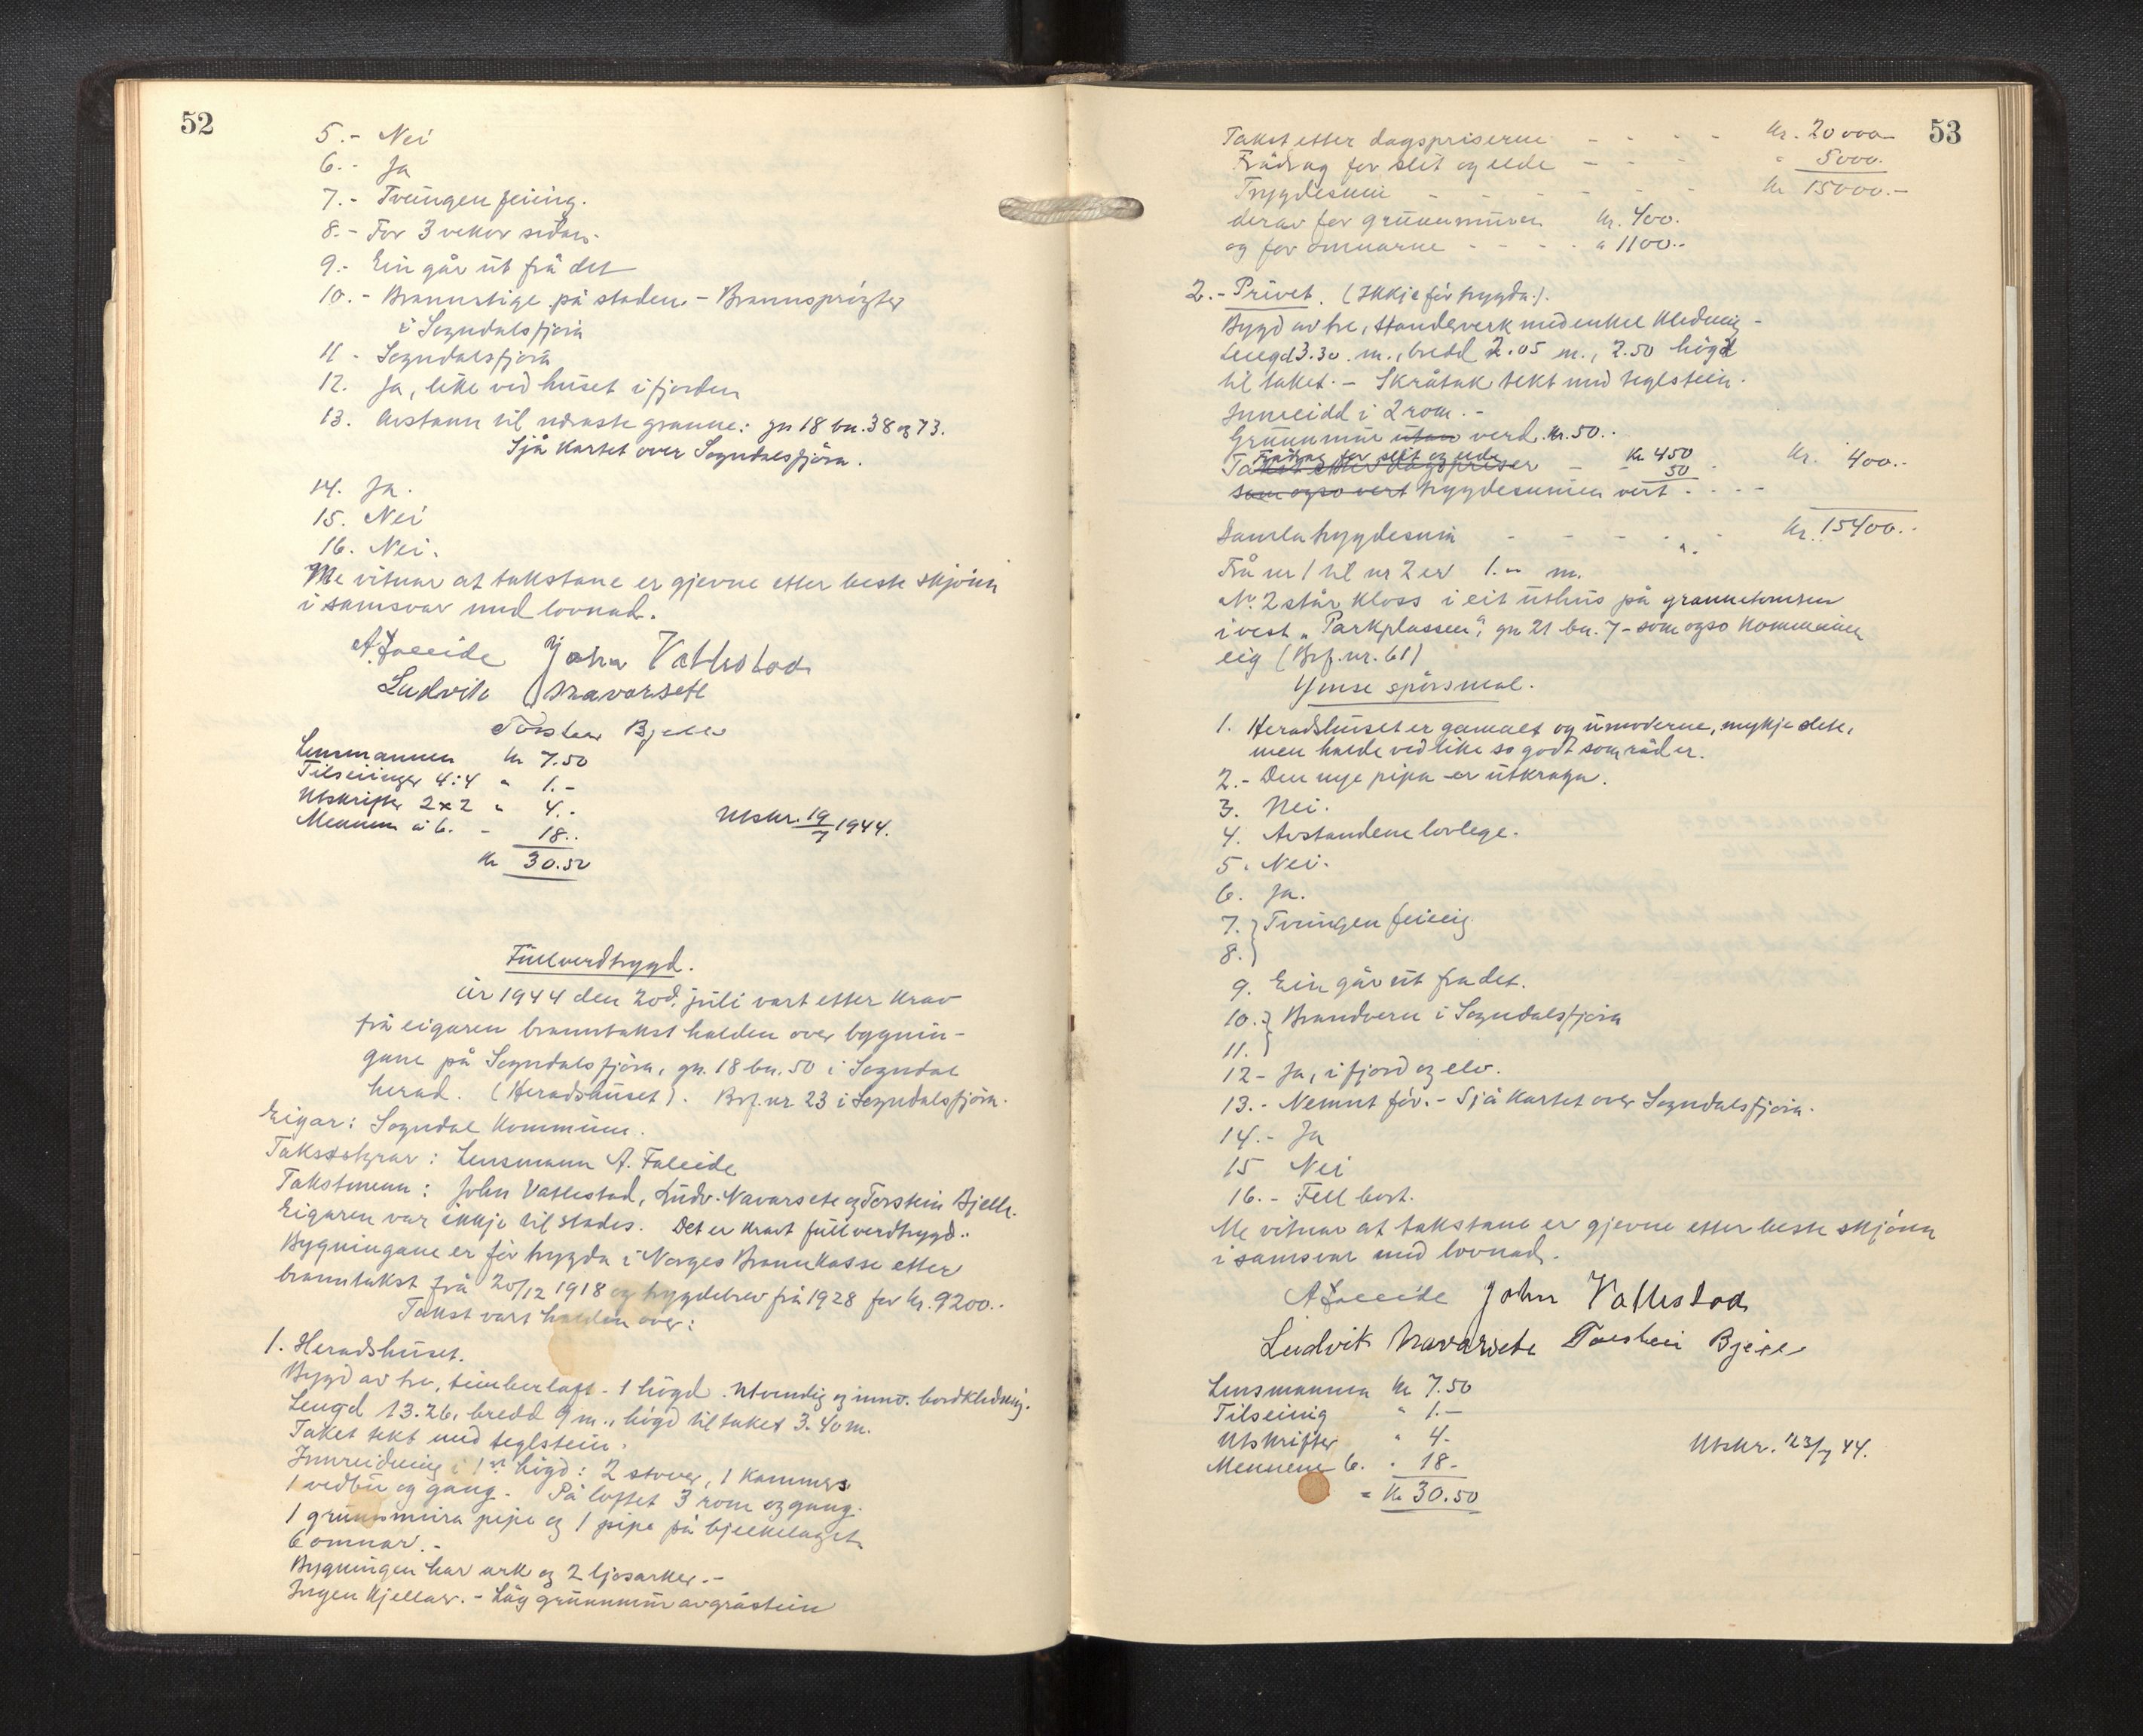 52
5.- Nei
6.- Ja
7.- Tvungen feiing.
8.- For 3 vekor sidan.
9.- Ein går ut frå det
10.- Brannstige på staden. - Brannsprøyter
i Sogndalsfjøra
11 - Sogndalsfjøra
12. Ja, like ved huset i fjorden
13. Avstann til næraste granne: gn 18 bn. 38 og 73.
Sjå kartet over Sogndalsfjøra.
14. Ja.
15. Nei
16. Nei.
Me vitnar at takstane er gjevne etter beste skjønn
i samsvar med lovnad.
A Faleide John Vatlestad
Ludvik Navarsete
Torstein Bjelle
Lensmannen kr 7.50
Tilseiingar 4:4 " 1.-
Utskrifter 2x2 " 4.-
Mennene á 6. - 18..
Kr 30.50
Utskr. 19/7 1944.
Fullverdtrygd.
År 1944 den 20d. juli vart etter krav
frå eigaren branntakst halden over bygnin-
gane på Sogndalsfjøra, gn. 18 bn. 50 i Sogndal
herad. (Heradshuset). Brf. nr. 23 i Sogndalsfjøra.
Eigar: Sogndal kommune.
Takstskrar: Lensmann A. Faleide
Takstmenn: John Vatlestad, Ludv. Navarsete og Torstein Bjelle.
Eigaren var ikkje til stades. Det er kravt fullverdtrygd..
Bygningane er før trygda i Norges Brannkasse etter
branntakst frå 20/12 1918 og trygdebrev frå 1928 for kr. 9200..
Takst vart halden over:
1. Heradshuset.
Bygd av tre, timberlaft - 1 høgd. Utvendig og innv. bordkledning.
Lengd 13.26, bredd 9 m., høgd til taket 3.40 m.
Taket tekt med teglstein.
Innreidning i 1ste høgd: 2 stover, 1 kammers
1 vedbu og gang. På loftet 3 rom og gang.
1 grunnmura pipe og 1 pipe på bjelkelaget.
6 omnar.-
Bygningen har ark og 2 ljosarker.-
Ingen kjellar. - Låg grunnmur av gråstein
53
Takst etter dagspriserne - - - - kr. 20000-
Frådrag for slit og elde - - - " 5000.
Trygdesum - - - - - - kr 15000.-
derav for grunnmuren kr. 400.
og for omnarne - - - - " 1100.-
2.- Privet. (Ikkje før trygda).
Bygd av tre, standerverk med enkel kledning -
Lengd 3.30 m., bredd 2.05 m., 2.50 høgd
til taket. - Skråtak tekt med teglstein.
Innreidd i 2 rom.-
Grunnmur utan verd. kr. 50..
Frådrag for slit og elde
Takst etter dagspriser - kr 450
50
kr. 400.-
som også vert trygdesummen vert . . . -
Samla trygdesum - - - - - kr. 15400..
Frå nr 1 til nr 2 er 1.- m.
Nr. 2 står kloss i eit uthus på grannetomten
i vest „Parkplassen", gn 21 bn. 7 - som også kommunen
eig (Brf. nr. 61)
Ymse spørsmål.
1. Heradshuset er gamalt og umoderne, mykje slite,
men halde ved like so godt som råd er.
2.- Den nye pipa er utkraga.
3. Nei.
4. Avstandene lovlege.
5. Nei.
6. Ja.
7. } Tvungen feiing
8. }
9. Ein går ut frå det.
10. } Brandvern i Sogndalsfjøra
11. }
12- Ja, i fjord og elv.
13.- Nemnt før. - Sjå kartet over Sogndalsfjøra.
14.- Ja
15 Nei
16.- Fell bort.
Me vitnar at takstane er gjevne etter beste skjønn
i samsvar med lovnad.
A Faleide John Vatlestad
Ludvik Navarsete Torstein Bjelle
Lensmannen kr 7.50
Tilseiing " 1.-
Utskrifter " 4.-
Mennene 6. " 18-
= Kr 30.50
Utskr. 23/7 44.